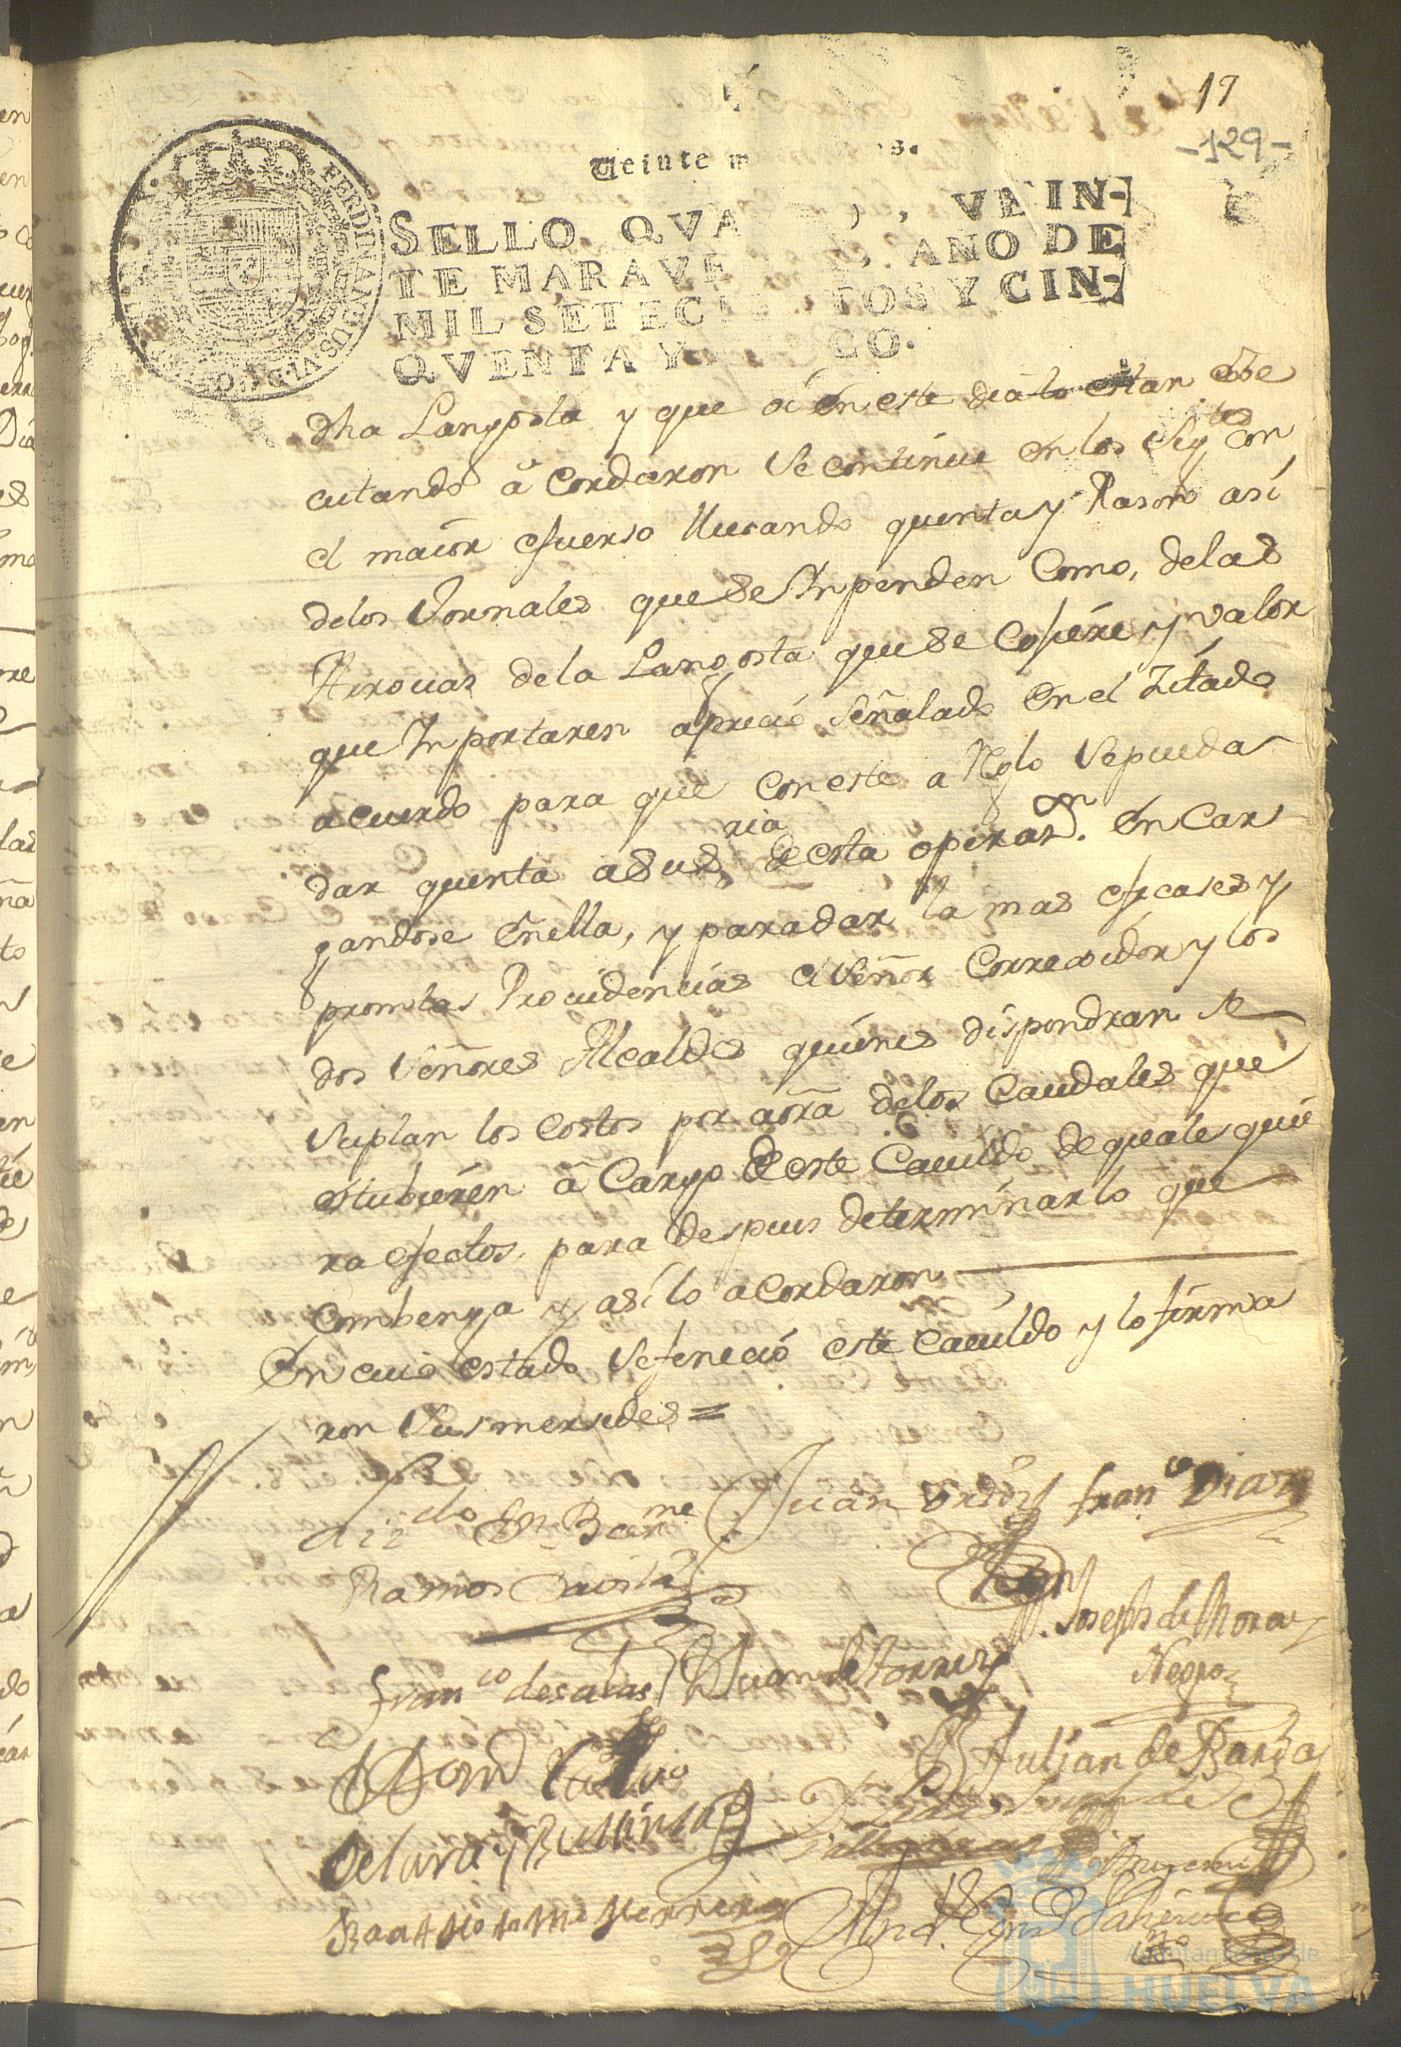 17
-129-
Veinte m s.
SELLO QVA , VEIN-
TE MARAVE , AÑO DE
MIL SETECIE TOS Y CIN-
QVENTA Y CO.
FERDINANDUS VI D G
dha Langosta y que oi en este dia lo estan exe
cutando acordaron se continue en los sigtes con
el maior esfuerso llevando quenta y Rason asi
delos Jornales que se Inpenden Como, delas
Arrovas dela Langosta que se Cojiere y valor
que Inportaren a precio señalado en el Zitado
acuerdo para que con este a Rglo se pueda
dar quenta a su sria de esta operazon. en Car
gandose en ella, y para dar la mas eficases y
promtas Providencias el señor Correxidor y los
dos señores Alcaldes quienes dispondran se
suplan los costos por aora delos Caudales que
estubieren a Cargo de este Cavildo de quales quie
ra efectos para despues determinarlo que
Combenga y asi lo acordaron
En cuio estado se fenecio este Cavildo y lo firma
ron sus mersedes =
Lizdo Dn Barme Juan franco Diaz
Ramos Dacosta
Joseph de Mora
Negro
franco de salas Juan de Torres
Julian de Barza
Domo
de Lara y Bustinza
Bartholome Herrera
Ayuntamiento de
HUELVA